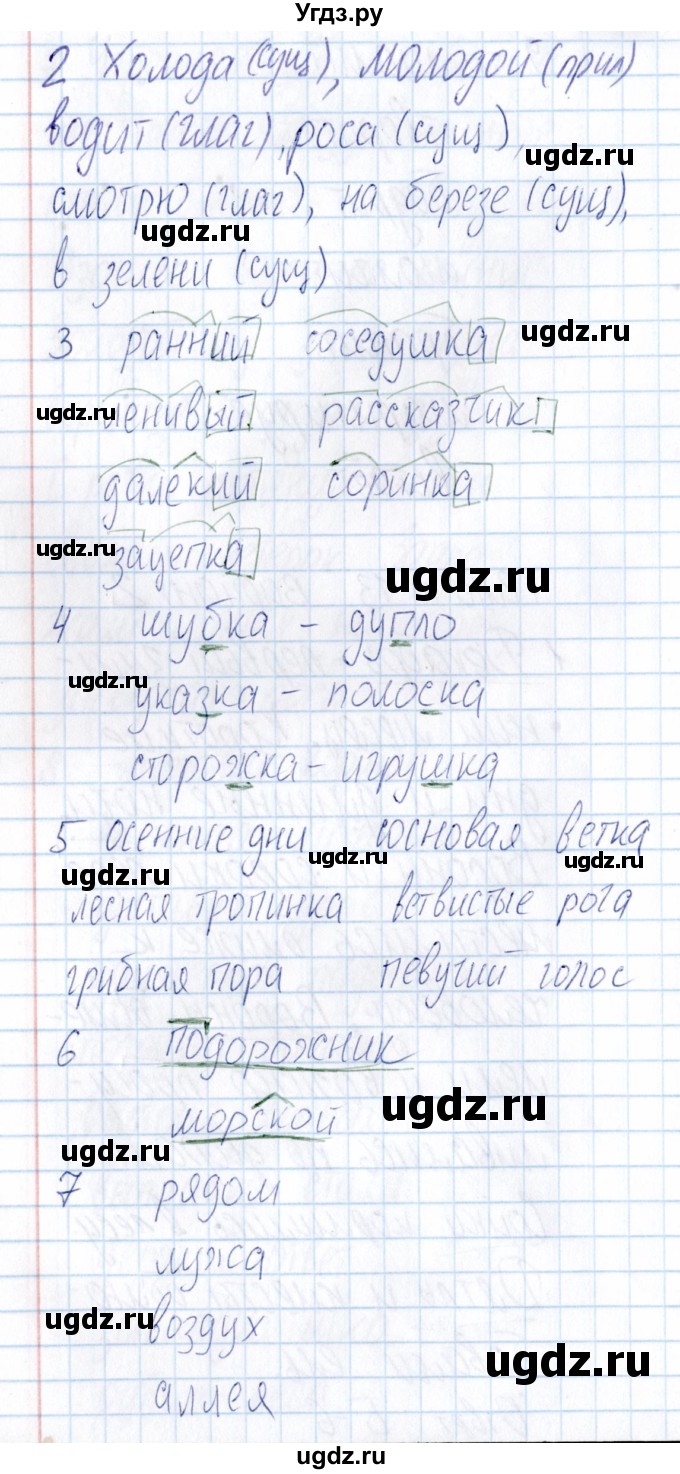 Угдз.ру
2 Холода (сущ), молодой (прил)
водит (глаг), роса (сущ),
ugdz.ru
смотрю (глаг), на березе (сущ),
ugdz.ru
в зелени (сущ)
3 ранний соседушка ugdz.ru
ugdz.ru ленивый рассказчик
далекий соринка
ugdz.ru зацепка
ugdz.ru
4 шубка - дупло
ugdz.ru
указка - полоска
сторожка - игрушка
5 осенние дни сосновая ветка
ugdz.ru ugdz.ru ugdz.ru
лесная тропинка ветвистые рога
грибная пора певучий голос
6 подорожник
ugdz.ru
морской
ugdz.ru
7 рядом
лужа
ugdz.ru воздух
ugdz.ru
аллея
ugdz.ru